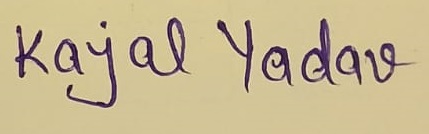 Kajal Yadav